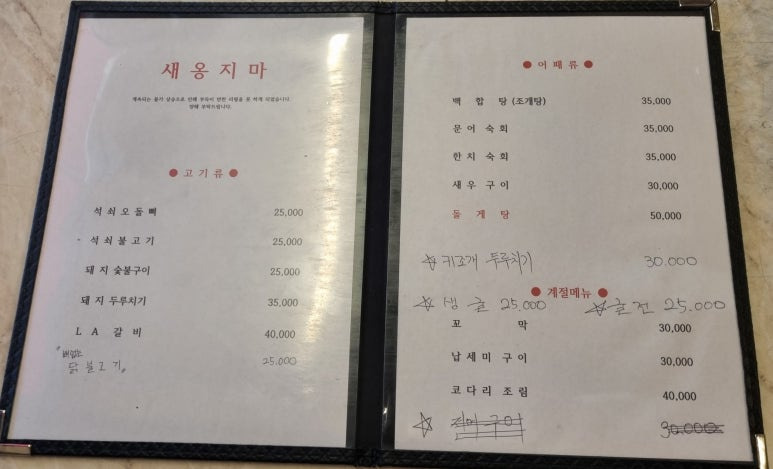 새옹지마
계속되는 물가 상승으로 인해 부득이 변한 리필을 못 하게 되었습니다.
양해 부탁드립니다.
● 고기류 ●
석쇠오돌뼈 25,000
석쇠불고기 25,000
돼지숯불구이 25,000
돼지두루치기 35,000
LA갈비 40,000
"뼈없는
닭불고기" 25.000
● 어패류 ●
백합탕(조개탕) 35,000
문어숙회 35,000
한치숙회 35,000
새우구이 30,000
돌게탕 50,000
☆키조개 두루치기 30.000
● 계절메뉴 ●
☆생굴 25.000 ☆굴전 25.000
꼬막 30,000
납세미구이 30,000
코다리조림 40,000
☆ 전어구이 30.000